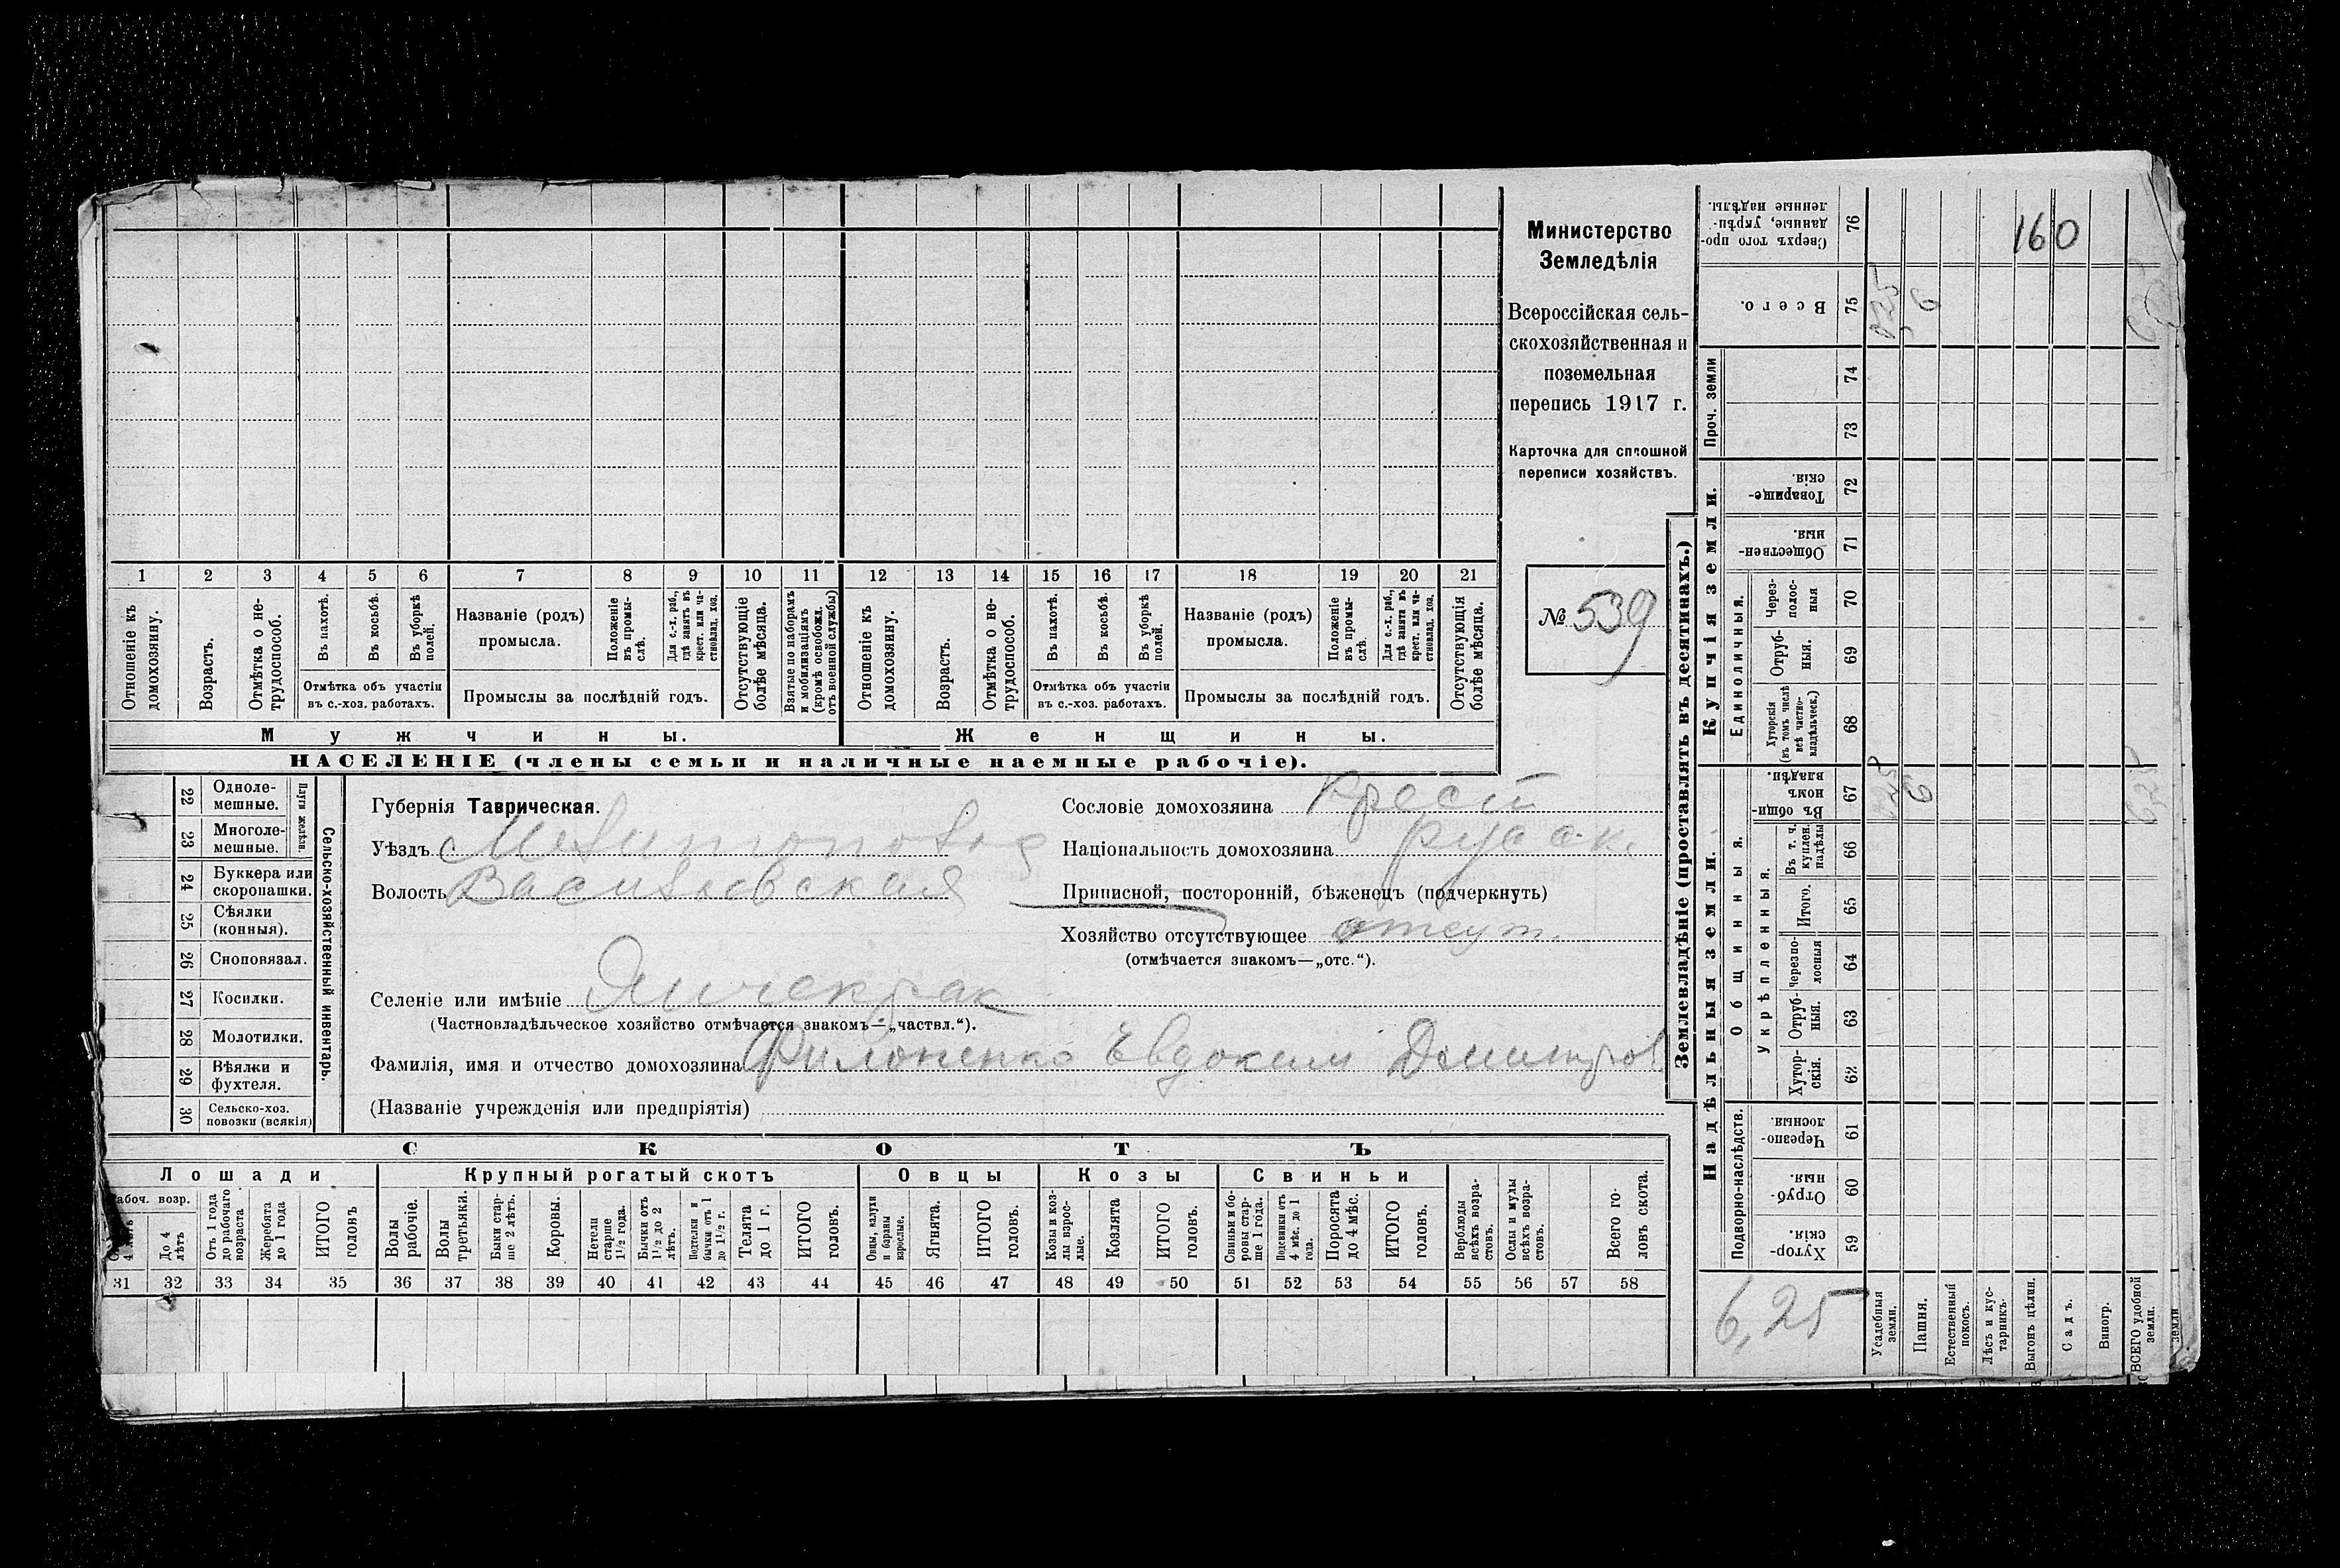 160
Министерство
Земледѣлія
Всероссійская сель-
скохозяйственная и
поземельная
перепись 1917 г.
Карточка для сплошной
переписи хозяйствъ.
№ 539
1 2 3 4 5 6 7 8 9 10 11 12 13 14 15 16 17 18 19 20 21
Отношеніе къ домохозяину.
Возрастъ.
Отмѣтка о не-трудоспособ.
Въ пахотѣ.
Въ косьбѣ.
Въ уборкѣ полей.
Отмѣтка объ участіи
въ с.-хоз. работахъ.
Названіе (родъ)
промысла.
Положеніе въ промы-слѣ.
Для с.-х. раб., гдѣ занятъ въ крест. или ча-стновлад. хоз.
Промыслы за послѣдній годъ.
Отсутствующіе болѣе мѣсяца.
Взятые по наборамъ и мобилизаціямъ (кромѣ освобожд. отъ военной службы)
Отношеніе къ домохозяину.
Возрастъ.
Отмѣтка о не-трудоспособ.
Въ пахотѣ.
Въ косьбѣ.
Въ уборкѣ полей.
Отмѣтка объ участіи
въ с.-хоз. работахъ.
Названіе (родъ)
промысла.
Положеніе въ промы-слѣ.
Для с.-х. раб., гдѣ занятъ въ крест. или ча-стновлад. хоз.
Промыслы за послѣдній годъ.
Отсутствующія болѣе мѣсяца.
Мужчины.
Женщины.
НАСЕЛЕНІЕ (члены семьи и наличные наемные рабочіе).
Сельско-хозяйственный инвентарь.
Плуги желѣзн.
22 Одноле-
мешные.
23 Многоле-
мешные.
24 Буккера или
скоропашки.
25 Сѣялки
(конныя).
26 Сноповязал.
27 Косилки.
28 Молотилки.
29 Вѣялки и
фухтеля.
30 Сельско-хоз.
повозки (всякія)
Губернія Таврическая.
Уѣздъ
Волость Васильевская
Селеніе или имѣніе Янчекрак
(Частновладѣльческое хозяйство отмѣчается знакомъ—„частвл.“).
Фамилія, имя и отчество домохозяина Филоненко Евдоким Дмитров
(Названіе учрежденія или предпріятія)
Сословіе домохозяина Крест
Національность домохозяина русск.
Приписной, посторонній, бѣженецъ (подчеркнуть)
Хозяйство отсутствующее отсут.
(отмѣчается знакомъ—„отс.“).
СКОТЪ
Лошади
Крупный рогатый скотъ
Овцы
Козы
Свиньи
абоч. возр.
4 лѣтъ
До 4 лѣтъ
Отъ 1 года до рабочаго возраста
Жеребята до 1 года
ИТОГО головъ
Волы рабочіе.
Волы третьяки.
Быки стар-ше 2 лѣтъ.
Коровы.
Нетели старше 1½ года.
Бычки отъ 1½ до 2 лѣтъ.
Подтелки и бычки отъ 1 до 1½ г.
Телята до 1 г.
ИТОГО головъ.
Овцы, валухи и бараны взрослые.
Ягнята.
ИТОГО головъ.
Козы и коз-лы взрос-лые.
Козлята
ИТОГО головъ.
Свиньи и бо-ровы стар-ше 1 года.
Подсвинки отъ 4 мѣс. до 1 года.
Поросята до 4 мѣс.
ИТОГО головъ.
Верблюды всѣхъ возра-стовъ.
Ослы и мулы всѣхъ возра-стовъ.
Всего го-ловъ скота.
31 32 33 34 35 36 37 38 39 40 41 42 43 44 45 46 47 48 49 50 51 52 53 54 55 56 57 58
Землевладѣніе (проставлять въ десятинахъ.)
Купчія земли.
Надѣльныя земли.
Проч. земли
Единоличныя.
Общинныя.
Укрѣпленныя.
Подворно-наслѣдств.
Сверхъ того про-данные, укрѣп-ленные надѣлы. 76
Всего. 75
6
74
73
Товарище-скія. 72
Обществен-ныя 71
Через-полос-ныя 70
Отруб-ныя. 69
Хуторскія (въ томъ числѣ всѣ частно-владѣльческ.) 68
Въ общин-номъ владѣн. 67
6
Въ т. ч. куплен. надѣлы 66
Итого. 65
Черезпо-лосныя 64
Отруб-ныя. 63
Хутор-скія. 62
Черезпо-лосныя. 61
Отруб-ныя. 60
Хутор-скія. 59
6,25
Усадебныя земли.
Пашня.
Естественный покосъ.
Лѣсъ и кус-тарникъ.
Выгонъ цѣлин.
Садъ.
Виногр.
ВСЕГО удобной земли.
земли